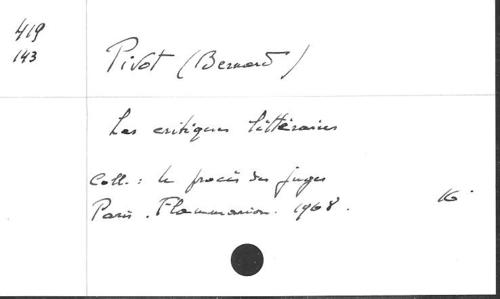 419
143
Pivot (Bernard)
Les critiques littéraires
Coll. : le procès des juges
Paris. Flammarion. 1968.